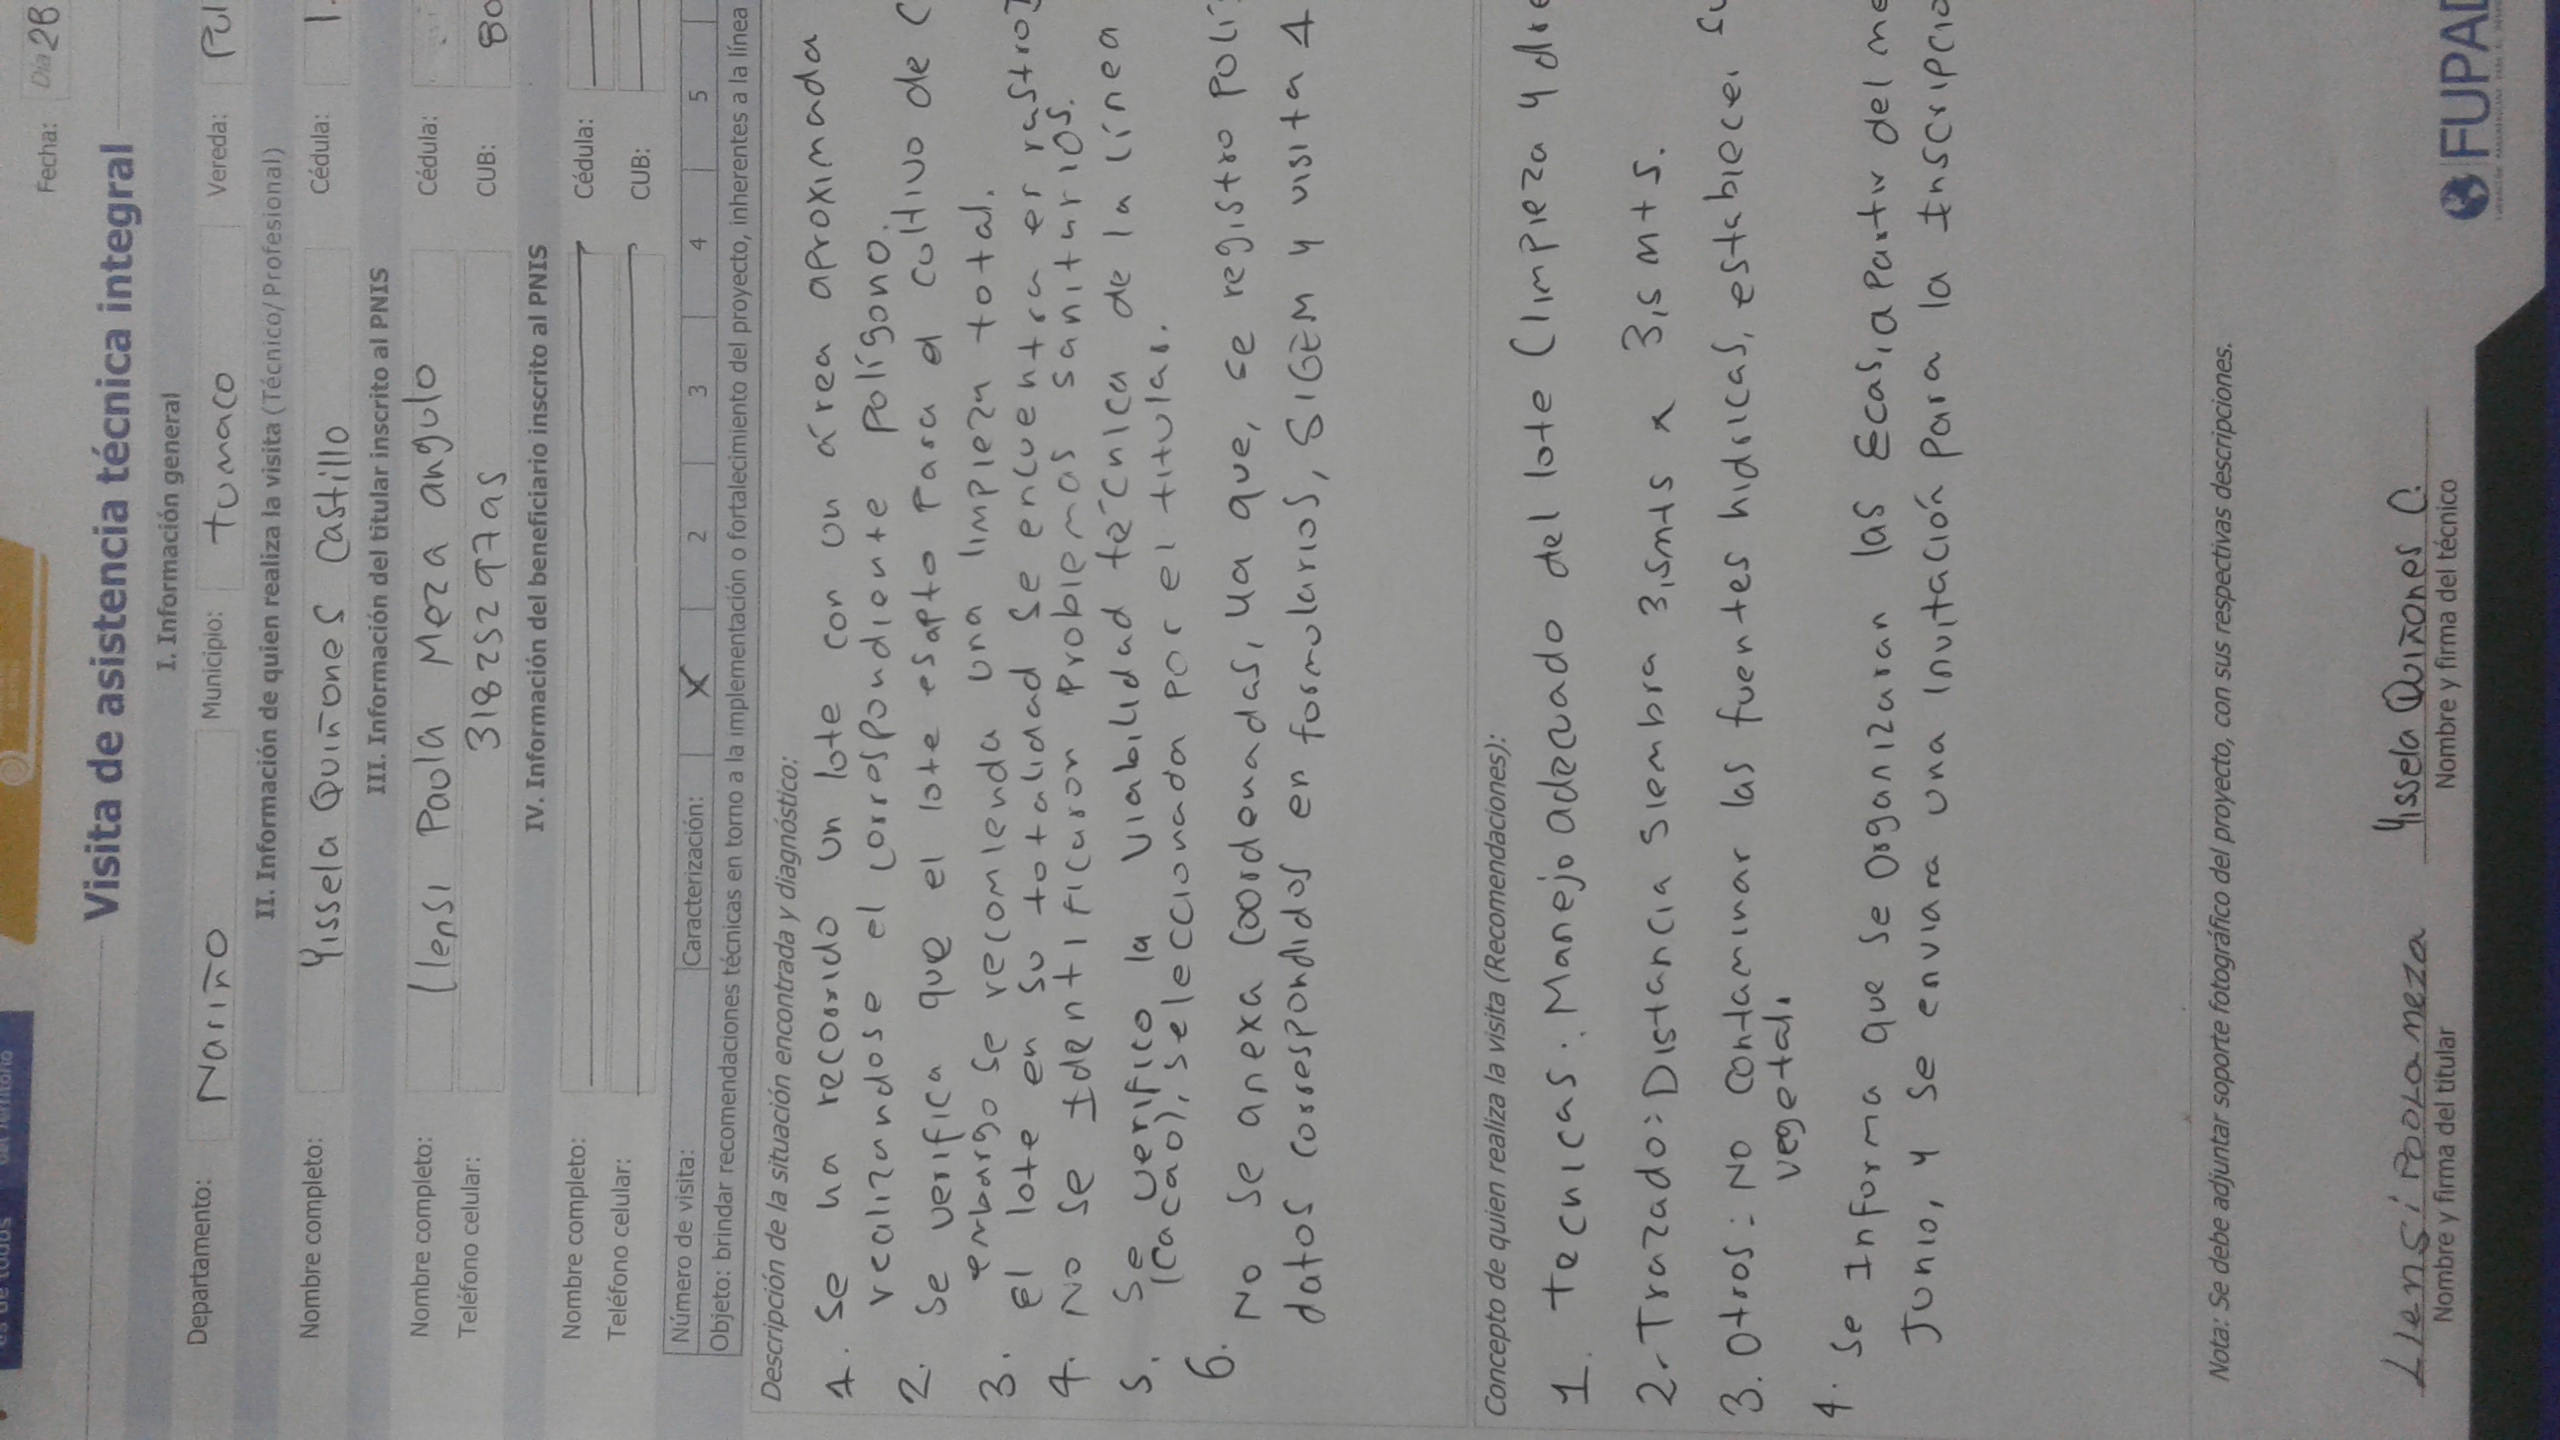 Fecha: Día 28
Visita de asistencia técnica integral
I. Información general
Departamento: Nariño Municipio: tumaco Vereda: Pul
II. Información de quien realiza la visita (Técnico/ Profesional)
Nombre completo: Yissela Quiñones Castillo Cédula: 1.
III. Información del titular inscrito al PNIS
Nombre completo: Llensi Paola Meza angulo Cédula:
Teléfono celular: 3182529795 CUB: 80
IV. Información del beneficiario inscrito al PNIS
Nombre completo: Cédula:
Teléfono celular: CUB:
Número de visita: Caracterización: X 2 3 4 5
Objeto: brindar recomendaciones técnicas en torno a la implementación o fortalecimiento del proyecto, inherentes a la línea
Descripción de la situación encontrada y diagnóstico:
1. Se ha recorrido un lote con un área aproximada
realizandose el correspondiente polígono.
2. Se verifica que el lote es apto Para el cultivo de C
embargo se recomienda una limpieza total.
3. El lote en su totalidad se encuentra en rastroj
4. No se Identificaron Problemas sanitarios.
5. Se verifico la viabilidad técnica de la línea
(Cacao), seleccionada por el titular.
6. No se anexa Coordenadas, ya que, se registro Polí
datos correspondidos en formularios, SIGEM y visita 1
Concepto de quien realiza la visita (Recomendaciones):
1. tecnicas: Manejo adecuado del lote (limpieza y dre
2. Trazado: Distancia siembra 3,5mts x 3,5 mts.
3. Otros: No Contaminar las fuentes hidricas, establecer su
vegetal.
4. Se Informa que se Organizaran las Ecas, a Partir del me
Junio, y se enviara una Invitación Para la Inscripcio
Nota: Se debe adjuntar soporte fotográfico del proyecto, con sus respectivas descripciones.
Llensi Paola meza Yissela Quiñones C.
Nombre y firma del titular Nombre y firma del técnico
FUPAD